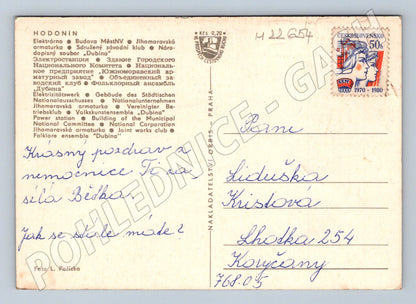 HODONÍN
Elektrárna ● Budova MěstNV ● Jihomoravská
armaturka ● Sdružený závodní klub ● Náro-
dopisný soubor „Dubina"
Электростанция ● Здание Городского
Национального Комитета ● Националь-
ное предприятие „Южноморавский ар-
матурный завод" ● Объединенный за-
водской клуб ● Фольклорный ансамбль
„Дубина"
Elektrizitätswerk ● Gebäude des Städtischen
Nationalausschusses ● Nationalunternehmen
Jihomoravská armaturka ● Vereinigter Be-
triebsklub ● Volkskunstensemble „Dubina"
Power station ● Building of the Municipal
National Committee ● National Corporation
Jihomoravská armaturka ● Joint works club ●
Folklore ensemble "Dubina"
Krásný pozdrav z
nemocnice Tě
síla Běťka.
Jak se stále máte?
Foto L. Růžička
Kčs 0,70
NAKLADATELSTVÍ ORBIS - PRAHA
M 22654
ČESKOSLOVENSKO
50h
1970 - 1980
Paní
Liduška
Kristová
Lhotka 254
Koryčany
768 05
POHLEDNICE - GALI